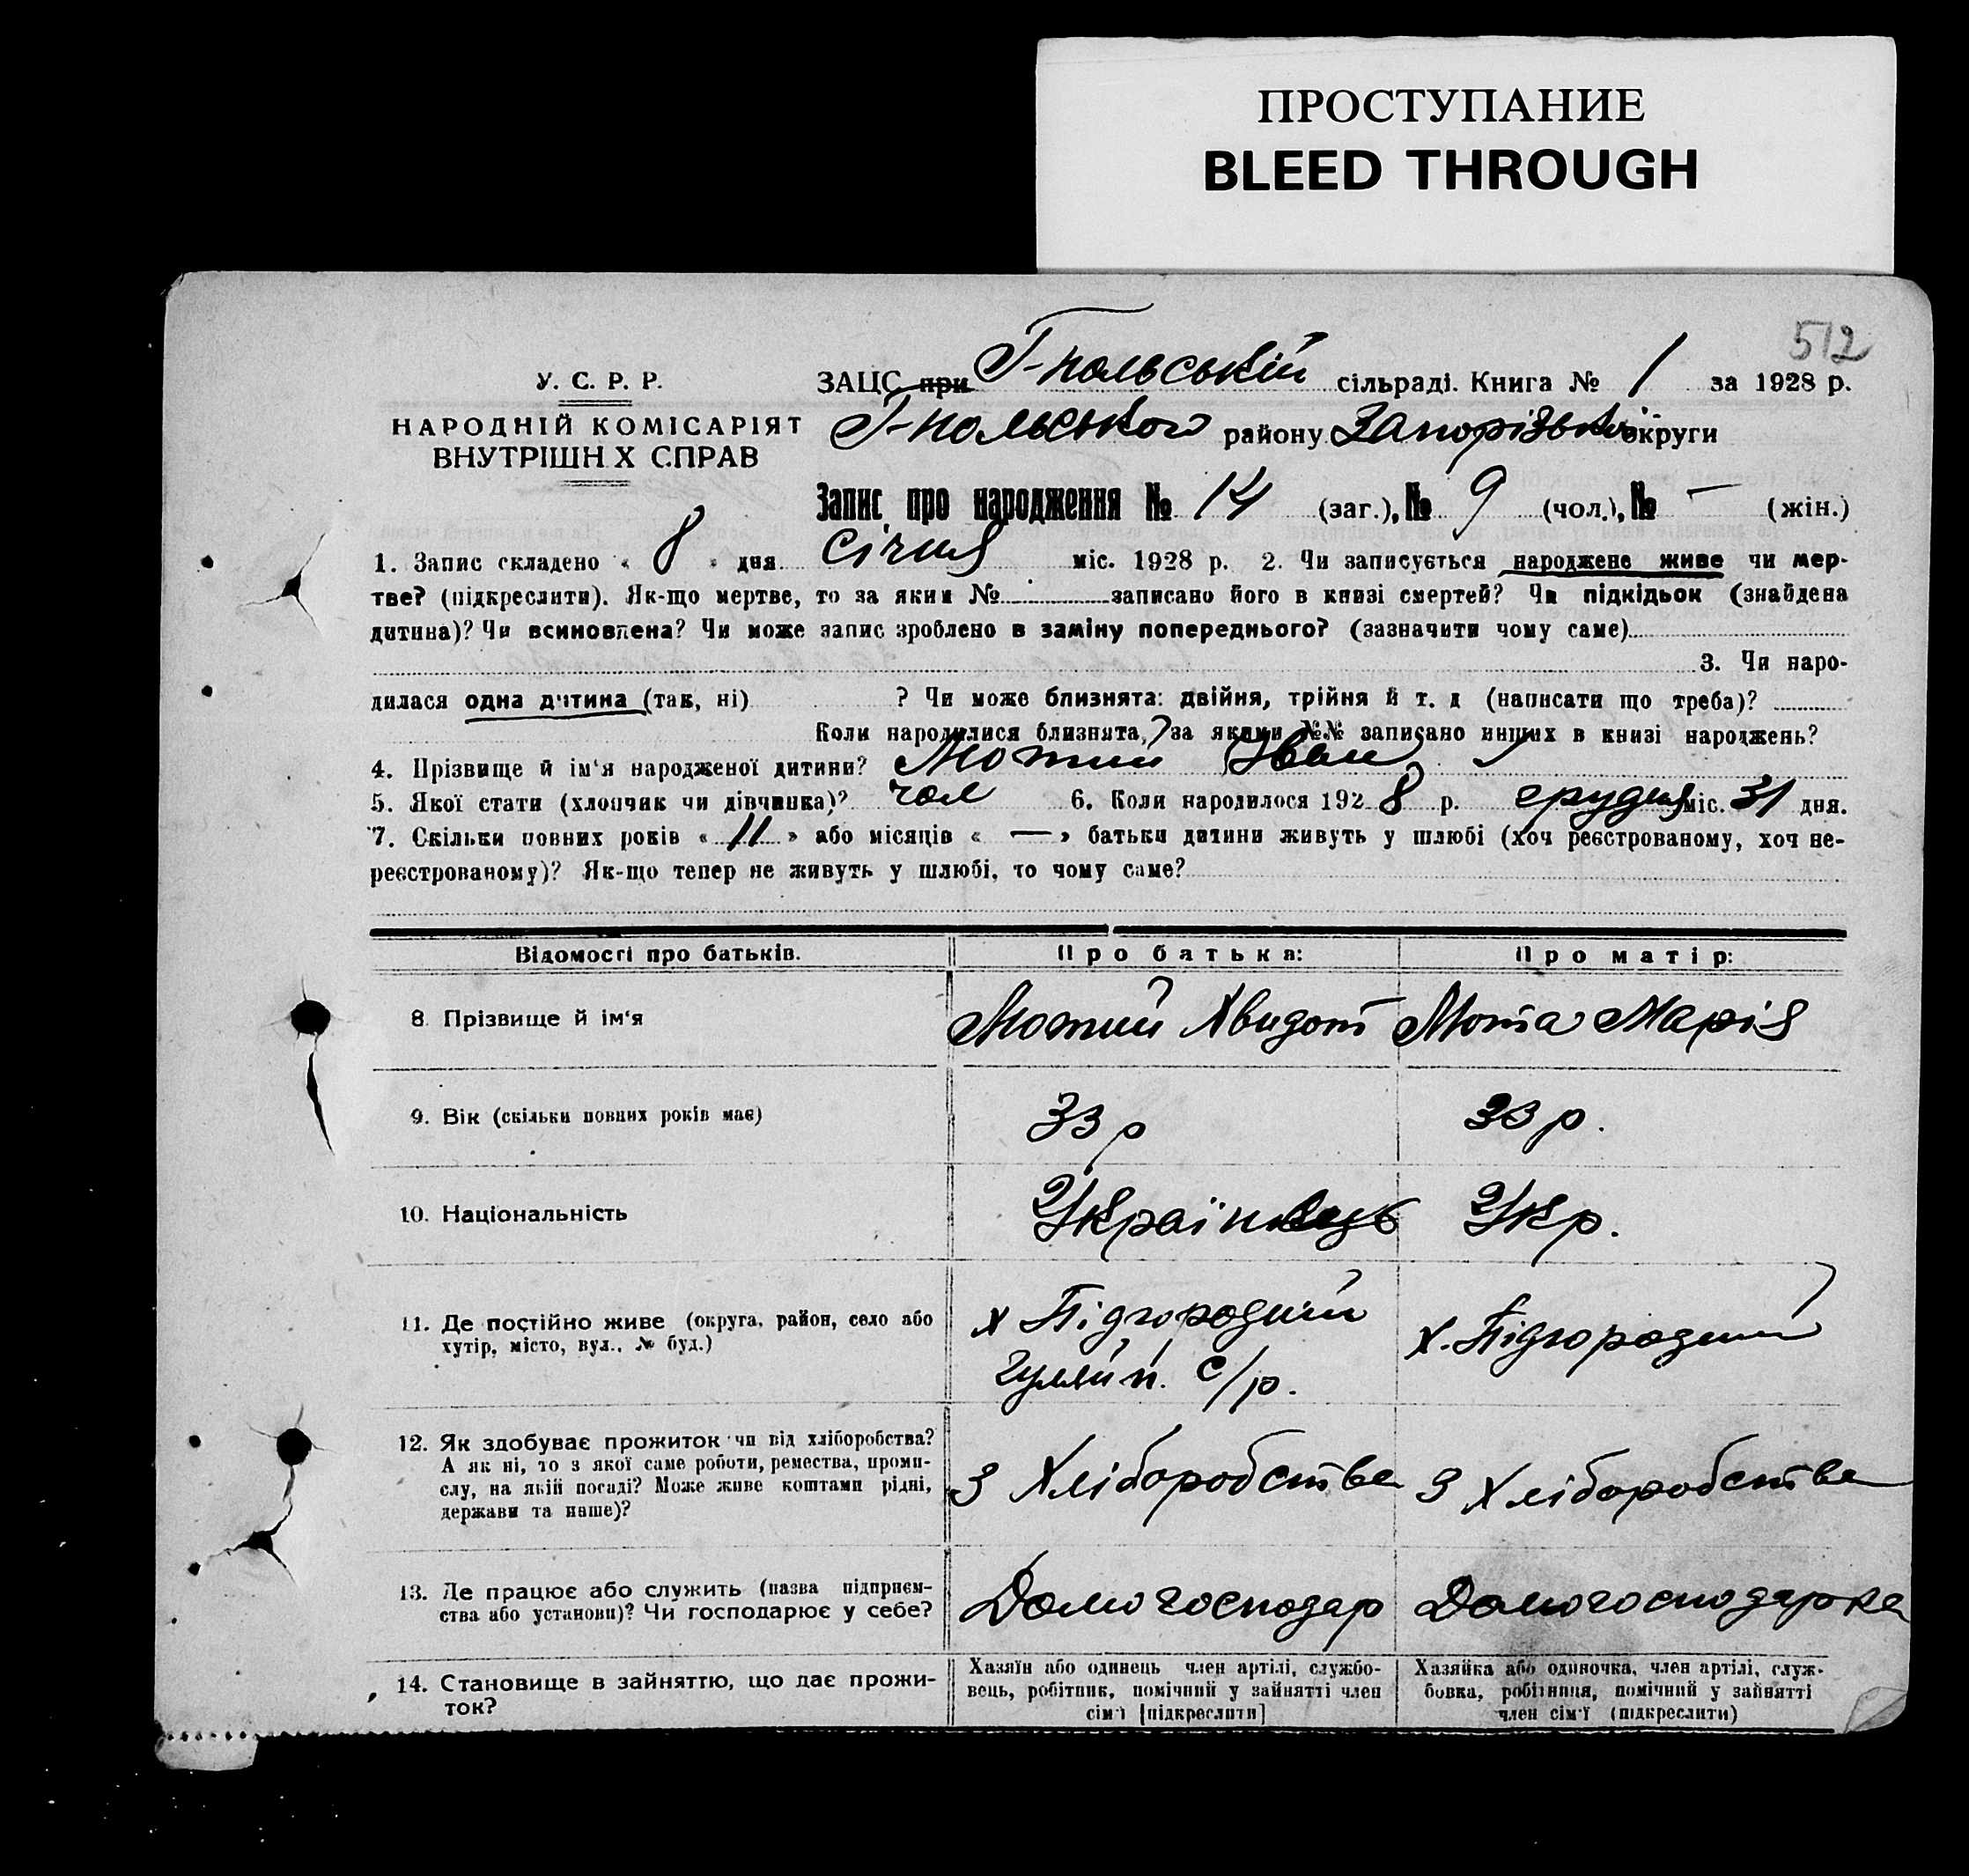 ПРОСТУПАНИЕ
BLEED THROUGH
512
У. С. Р. Р.
НАРОДНІЙ КОМІСАРІЯТ
ВНУТРІШН Х СПРАВ
ЗАЦС при Г-польській сільраді. Книга № 1 за 1928 р.
Г-польського району Запорізької округи
Запис про народження № 14 (заг.), № 9 (чол.), № — (жін.)
1. Запис складено « 8 » дня січня міс. 1928 р. 2. Чи записується народжене живе чи мер-
тве? (підкреслити). Як-що мертве, то за яким № записано його в книзі смертей? Чи підкідьок (знайдена
дитина)? Чи всиновлена? Чи може запис зроблено в заміну попереднього? (зазначити чому саме)
3. Чи наро-
дилася одна дитина (так, ні) ? Чи може близнята: двійня, трійня й т. д (написати що треба)?
Коли народилися близнята, за якими №№ записано инших в книзі народжень?
4. Прізвище й ім‘я народженої дитини? Мотий Іван
5. Якої стати (хлопчик чи дівчинка)? чол 6. Коли народилося 1928 р. грудня міс. 31 дня.
7. Скільки повних років « 11 » або місяців « — » батьки дитини живуть у шлюбі (хоч реєстрованому, хоч не-
реєстрованому)? Як-що тепер не живуть у шлюбі, то чому саме?
Відомості про батьків. Про батька: Про матір:
8. Прізвище й ім‘я Мотий Хвидот Мота Марія
9. Вік (скільки повних років має) 33 р 33 р.
10. Національність Українець Укр.
11. Де постійно живе (округа, район, село або
хутір, місто, вул., № буд.)
х Підгородний
Гуляйп. с/р.
х. Підгородний
12. Як здобуває прожиток чи від хліборобства?
А як ні, то з якої саме роботи, ремества, проми-
слу, на якій посаді? Може живе коштами рідні,
держави та инше)?
З Хліборобства З Хліборобства
13. Де працює або служить (назва підприєм-
ства або установи)? Чи господарює у себе?
Домогосподар Домогосподарка
14. Становище в зайняттю, що дає прожи-
ток?
Хазяїн або одинець член артілі, службо-
вець, робітник, помічний у зайнятті член
сім‘ї [підкреслити]
Хазяйка або одиночка, член артілі, служ-
бовка, робітниця, помічний у зайнятті
член сім‘ї (підкреслити)